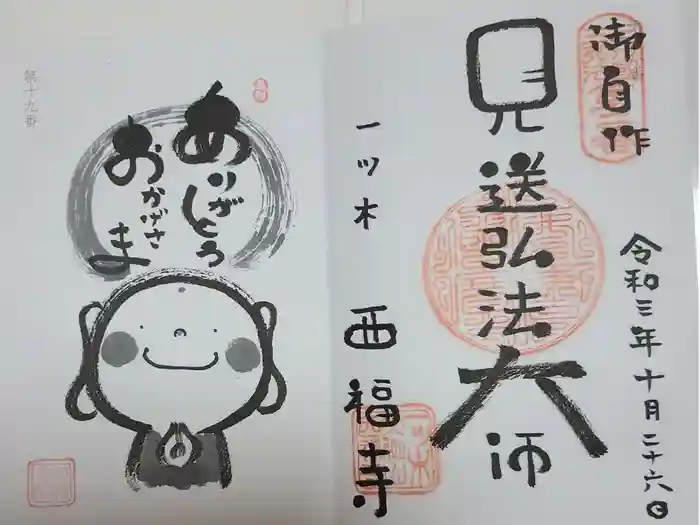 御自作
見送弘法大師
令和三年十月二十六日
一ツ木 西福寺
ありがとう
おかげさま
第十九番